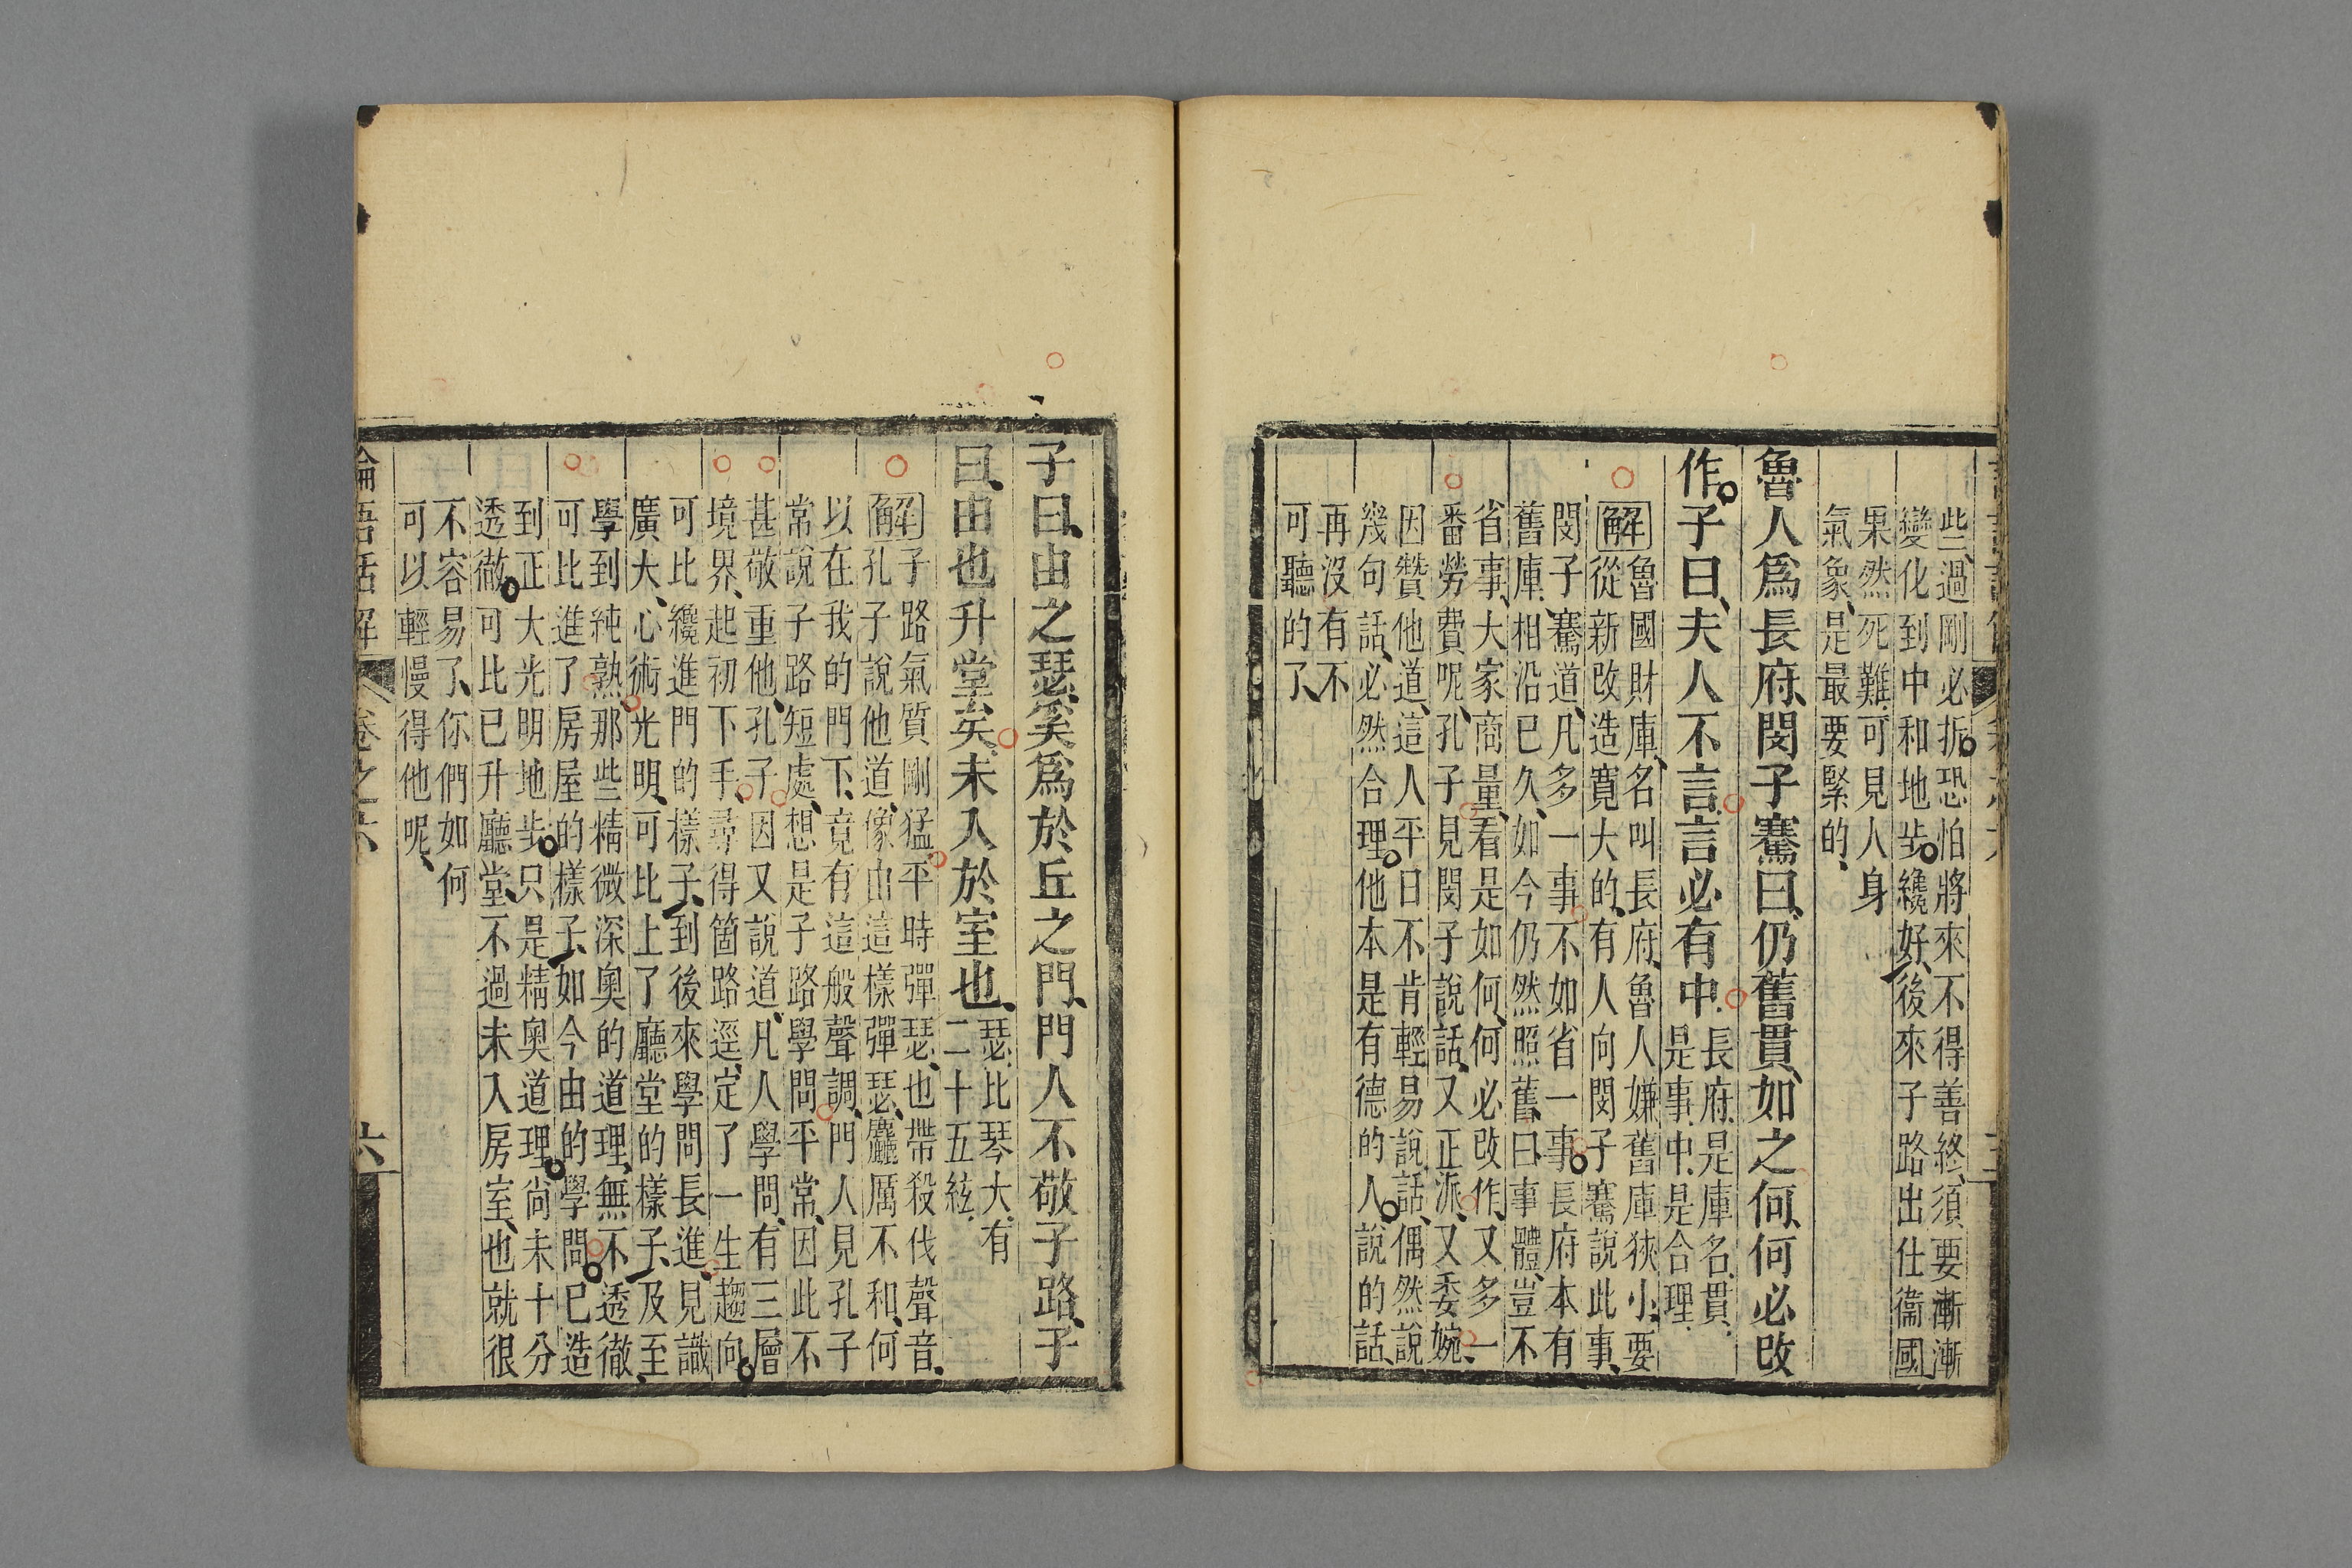 些、過剛必折。恐怕將來不得善終、須要漸漸
變化到中和地步。纔好、後來子路出仕衞國
果然死難、可見人身
氣象、是最要緊的、
魯人爲長府、閔子騫曰、仍舊貫、如之何、何必改
作。子曰、夫人不言、言必有中、
長府、是庫名、貫、
是事、中、是合理、
解魯國財庫、名叫長府、魯人嫌舊庫狹小、要
從新改造寬大的、有人向閔子騫說此事、
閔子騫道、凡多一事、不如省一事。長府本有
舊庫、相沿已久、如今仍然照舊、曰事體、豈不
省事、大家商量、看是如何、何必改作、又多一
番勞費呢、孔子見閔子說話、又正派、又委婉、
因贊他道、這人平日不肯輕易說話、偶然說
幾句話、必然合理。他本是有德的人。說的話、
再沒有不
可聽的了、
子曰、由之瑟、奚爲於丘之門、門人不敬子路、子
曰、由也升堂矣、未入於室也、
瑟、比琴大、有
二十五絃、
解子路氣質剛猛、平時彈瑟、也帶殺伐聲音、
孔子說他道、像由這樣彈瑟、麤厲不和、何
以在我的門下、竟有這般聲調、門人見孔子
常說子路短處、想是子路學問平常、因此不
甚敬重他、孔子因又說道、凡人學問、有三層
境界、起初下手、尋得箇路逕、定了一生趨向。
可比纔進門的樣子、到後來學問長進、見識
廣大、心術光明、可比上了廳堂的樣子、及至
學到純熟、那些精微深奧的道理、無不透徹、
可比進了房屋的樣子、如今由的學問。已造
到正大光明地步。只是精奧道理。尚未十分
透徹。可比已升廳堂、不過未入房室、也就很
不容易了、你們如何
可以輕慢得他呢、
論語話解
卷之六
六